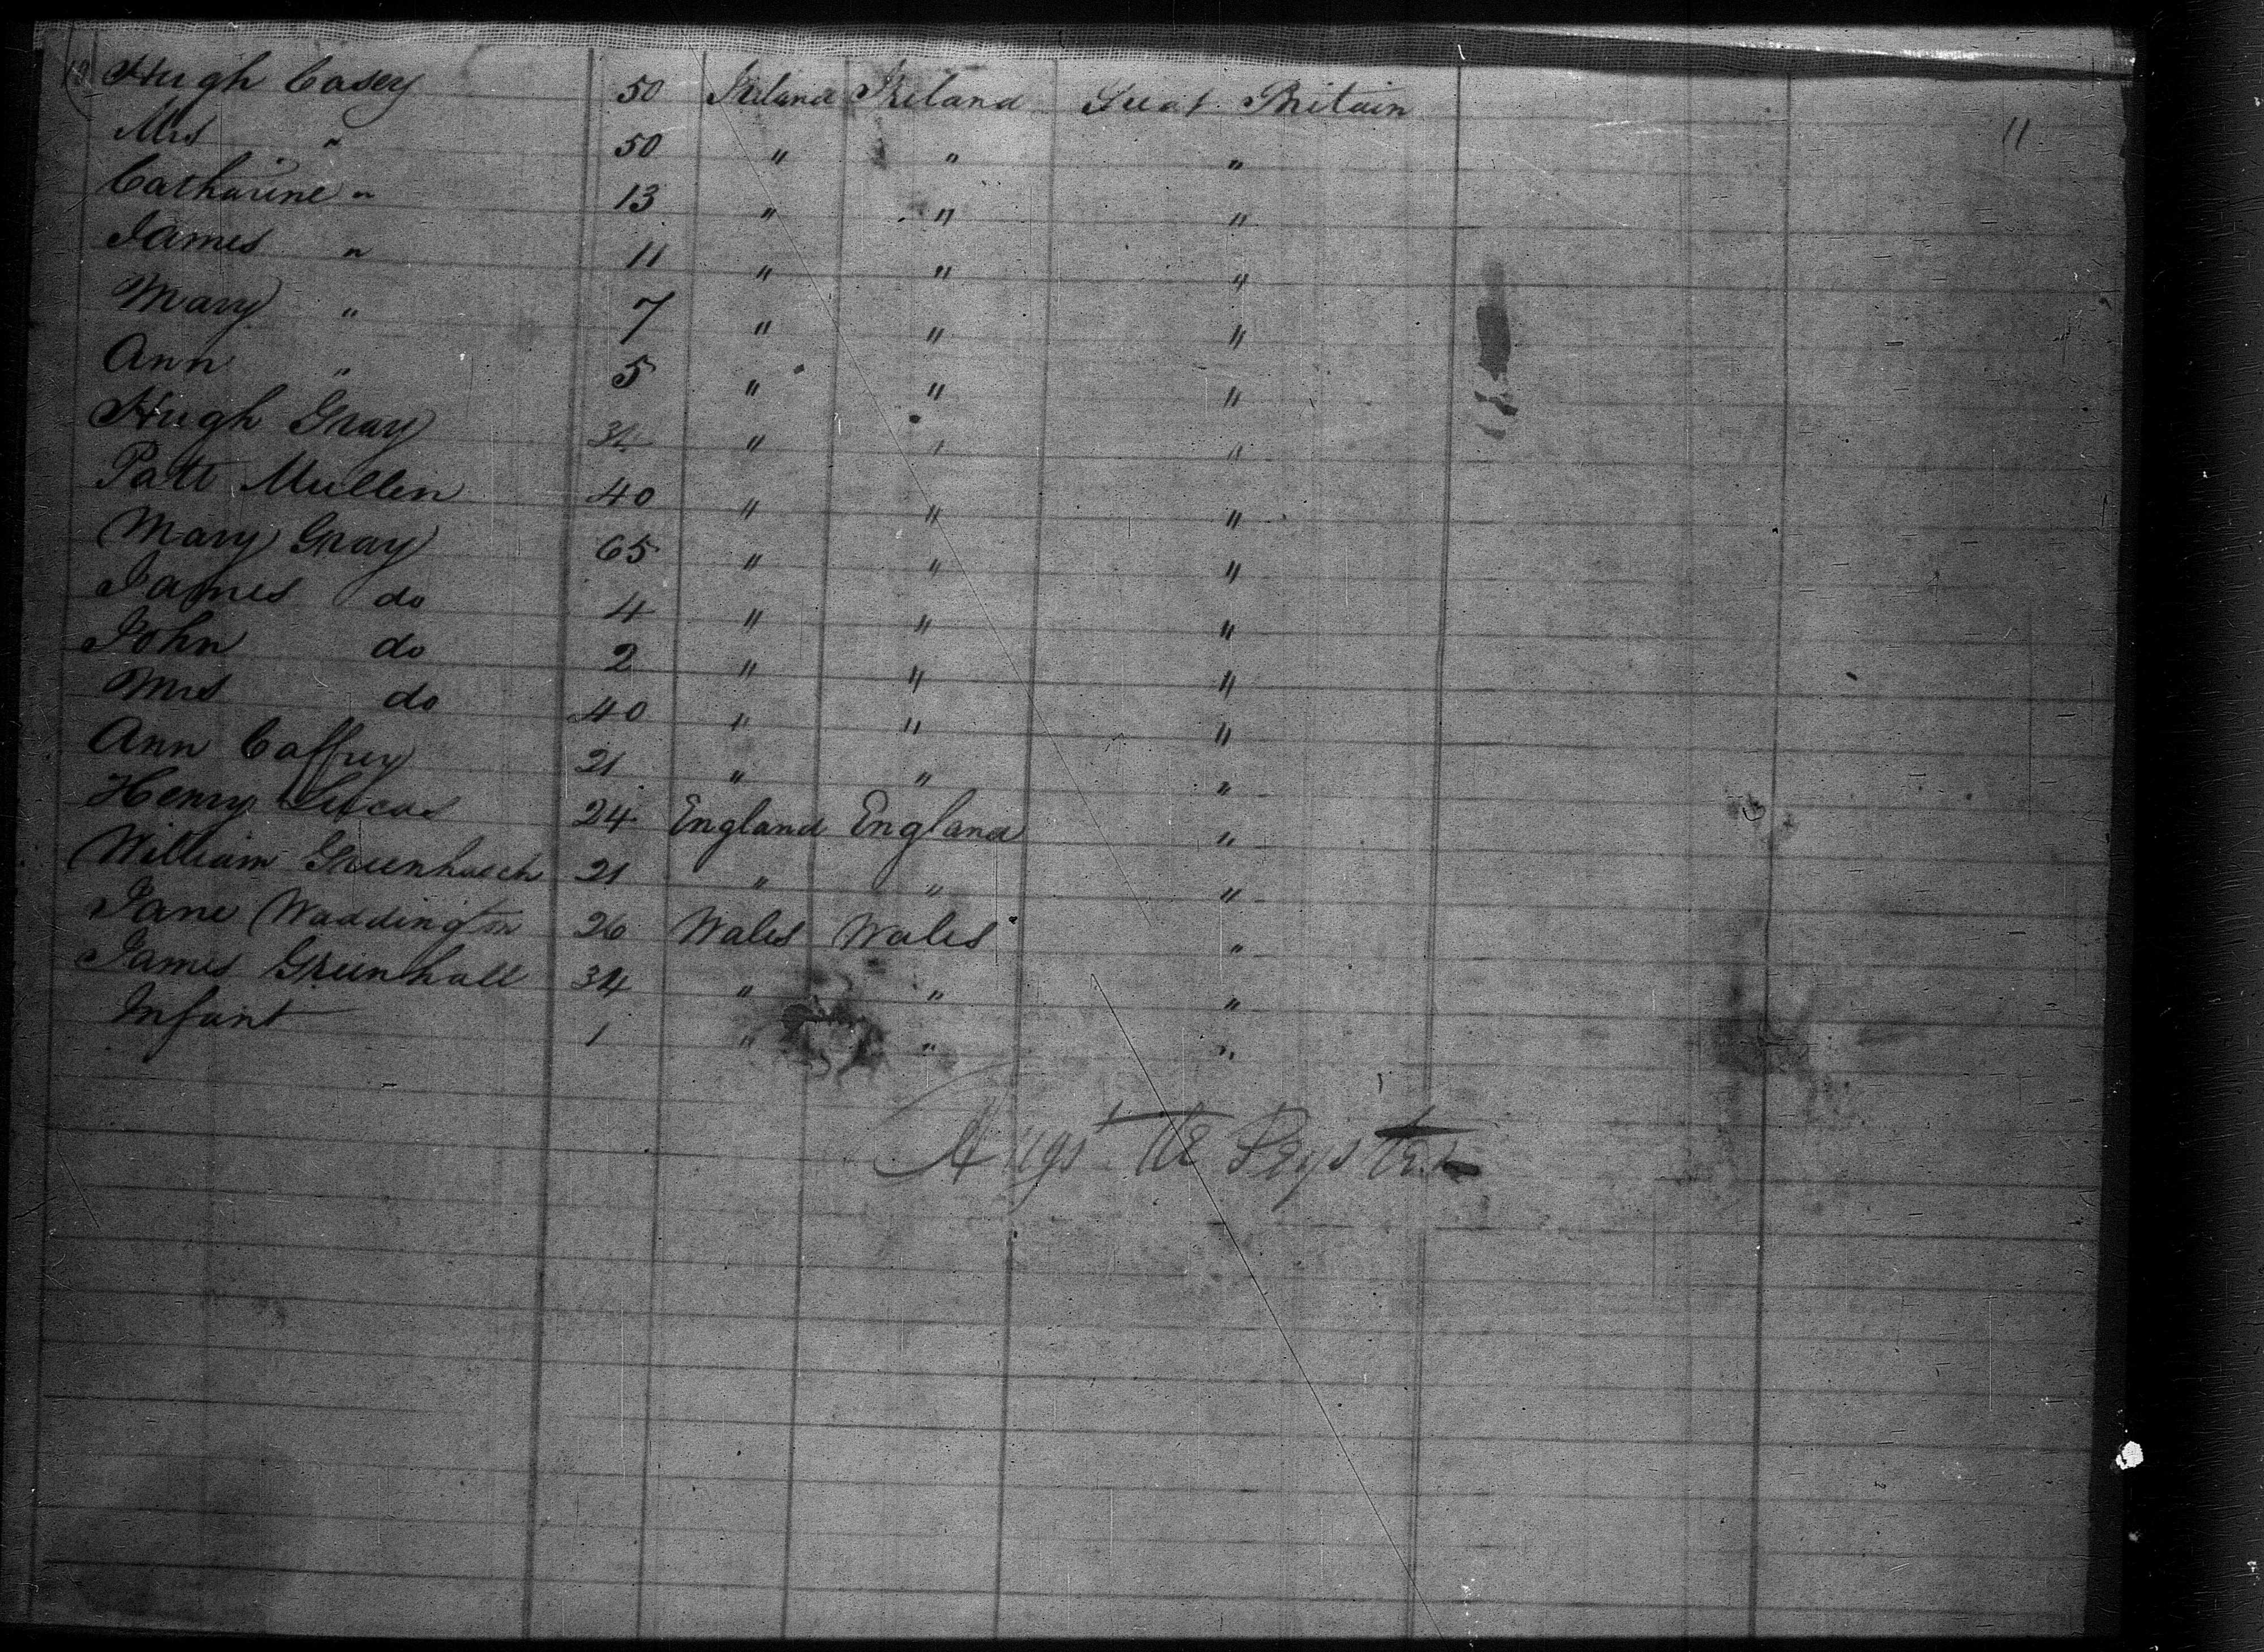 Hugh Casey 50 Ireland Ireland Great Britain
11
Mrs " 50 " " "
Catharine " 13 " " "
James " 11 " " "
Mary " 7 " " "
Ann " 5 " " "
Hugh Gray " " "
Patt Mullin 40 " " "
Mary Gray 65 " " "
James do 4 " " "
John do 2 " " "
Mrs do 40 " " "
Ann Caffrey 21 " " "
Henry Lucas 24 England England "
William 21 " " "
Jane Waddington 26 Wales Wales "
James Greenhall 34 " " "
Infant 1 " " "
Augst De Peyster